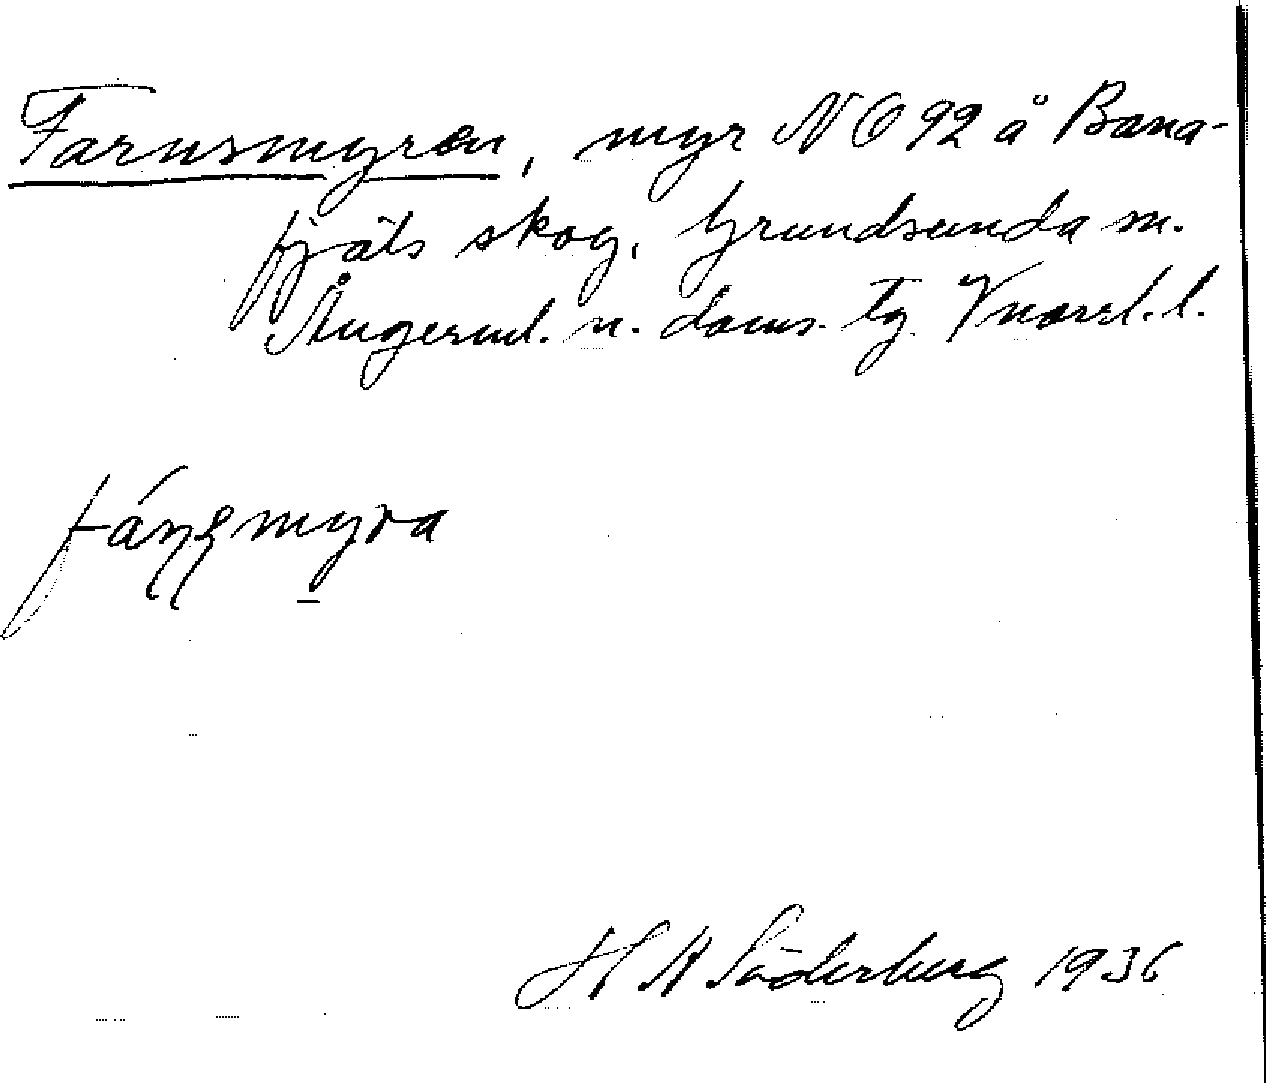 Farnsmyren, myr NO 92 å Bana-
fjäls skog, Grundsunda sn.
Ångerml. n. doms. tg. Vnorrl. l.
fáɳʂmyra
H H Söderberg 1936